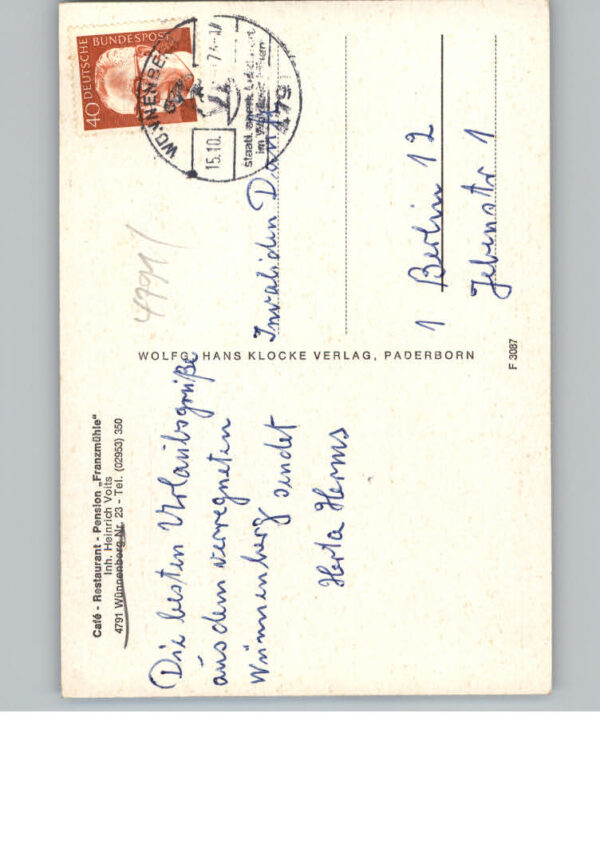 Café - Restaurant - Pension „Franzmühle“
Inh. Heinrich Voits
4791 Wünnenberg Nr. 23 - Tel. (02953) 350
Die besten Urlaubsgrüße
aus dem verregneten
Wünnenberg sendet
Herta Herms
WOLFG. HANS KLOCKE VERLAG, PADERBORN
F 3087
40 DEUTSCHE BUNDESPOST
WÜNNENBERG
15.10.
staatl. anerk.
479
4791
Invaliden Dank
1 Berlin 12
Jebenstr 1